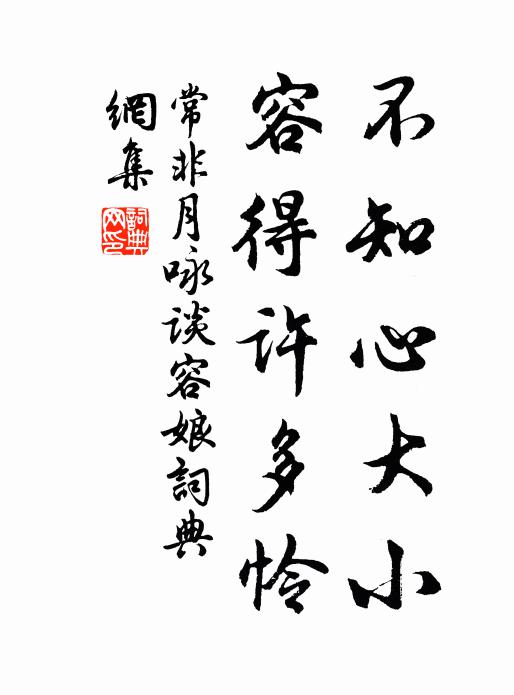 不知心大小
容得許多怜
常非月咏谈容娘詞典
網集
詞典网印